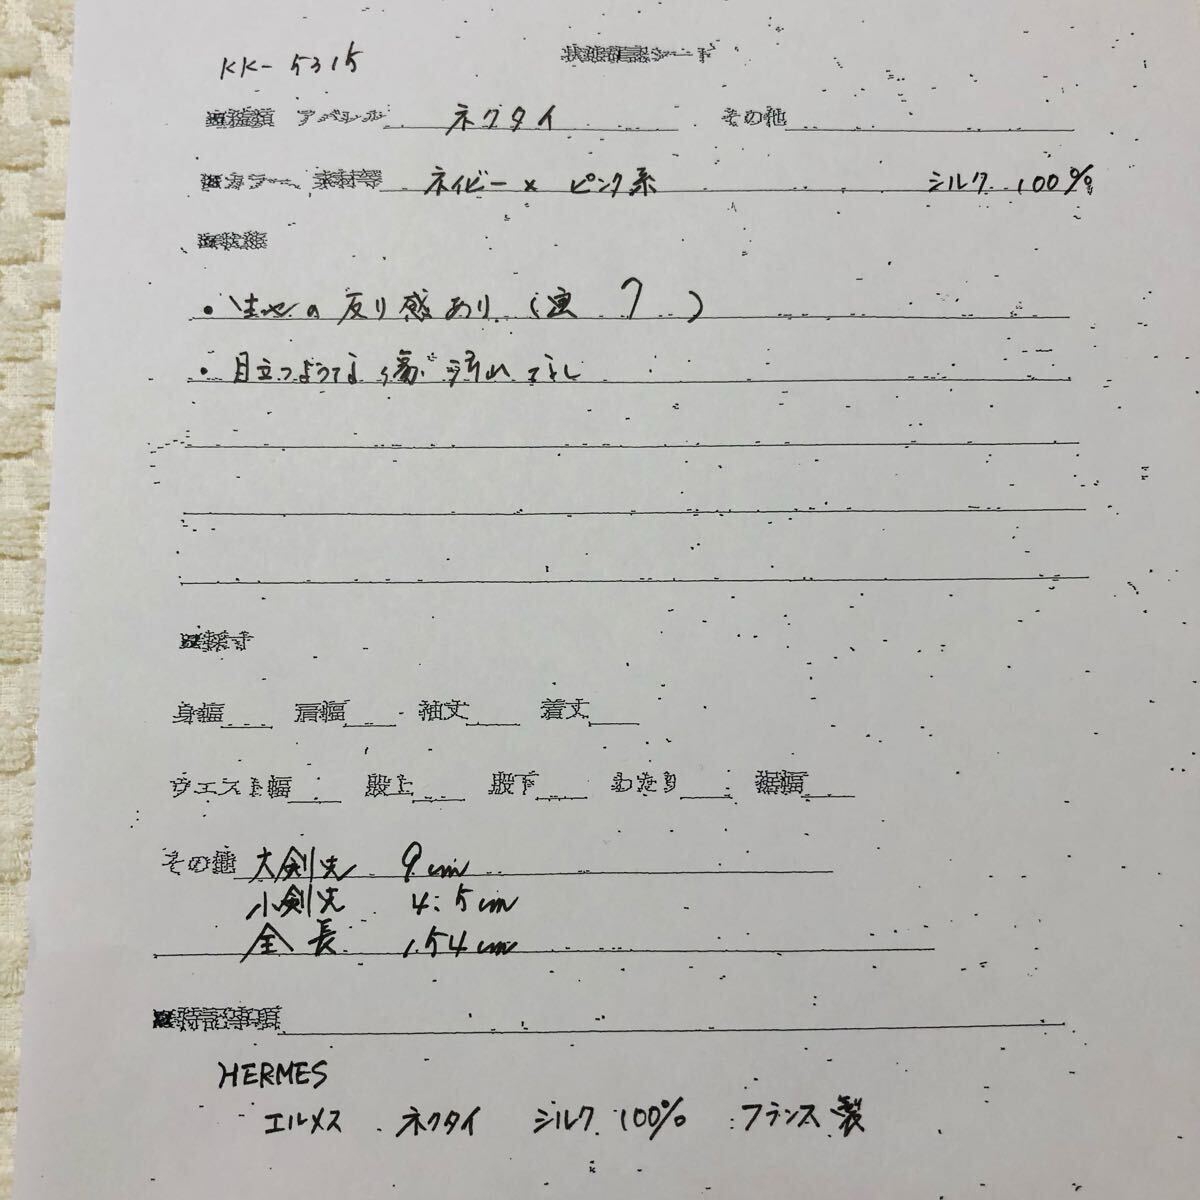 KK-5315
状態確認シート
■種類 アパレル ネクタイ その他
■カラー、素材等 ネイビー × ピンク系 シルク 100%
■状態
・生地の反り感あり (
・目立つような傷、汚れなし
■採寸
身幅 肩幅 袖丈 着丈
ウエスト幅 股上 股下 わたり 裾幅
その他 大剣先 9cm
小剣先 4.5cm
全長 154cm
■特記事項
HERMES
エルメス ネクタイ シルク 100% フランス製